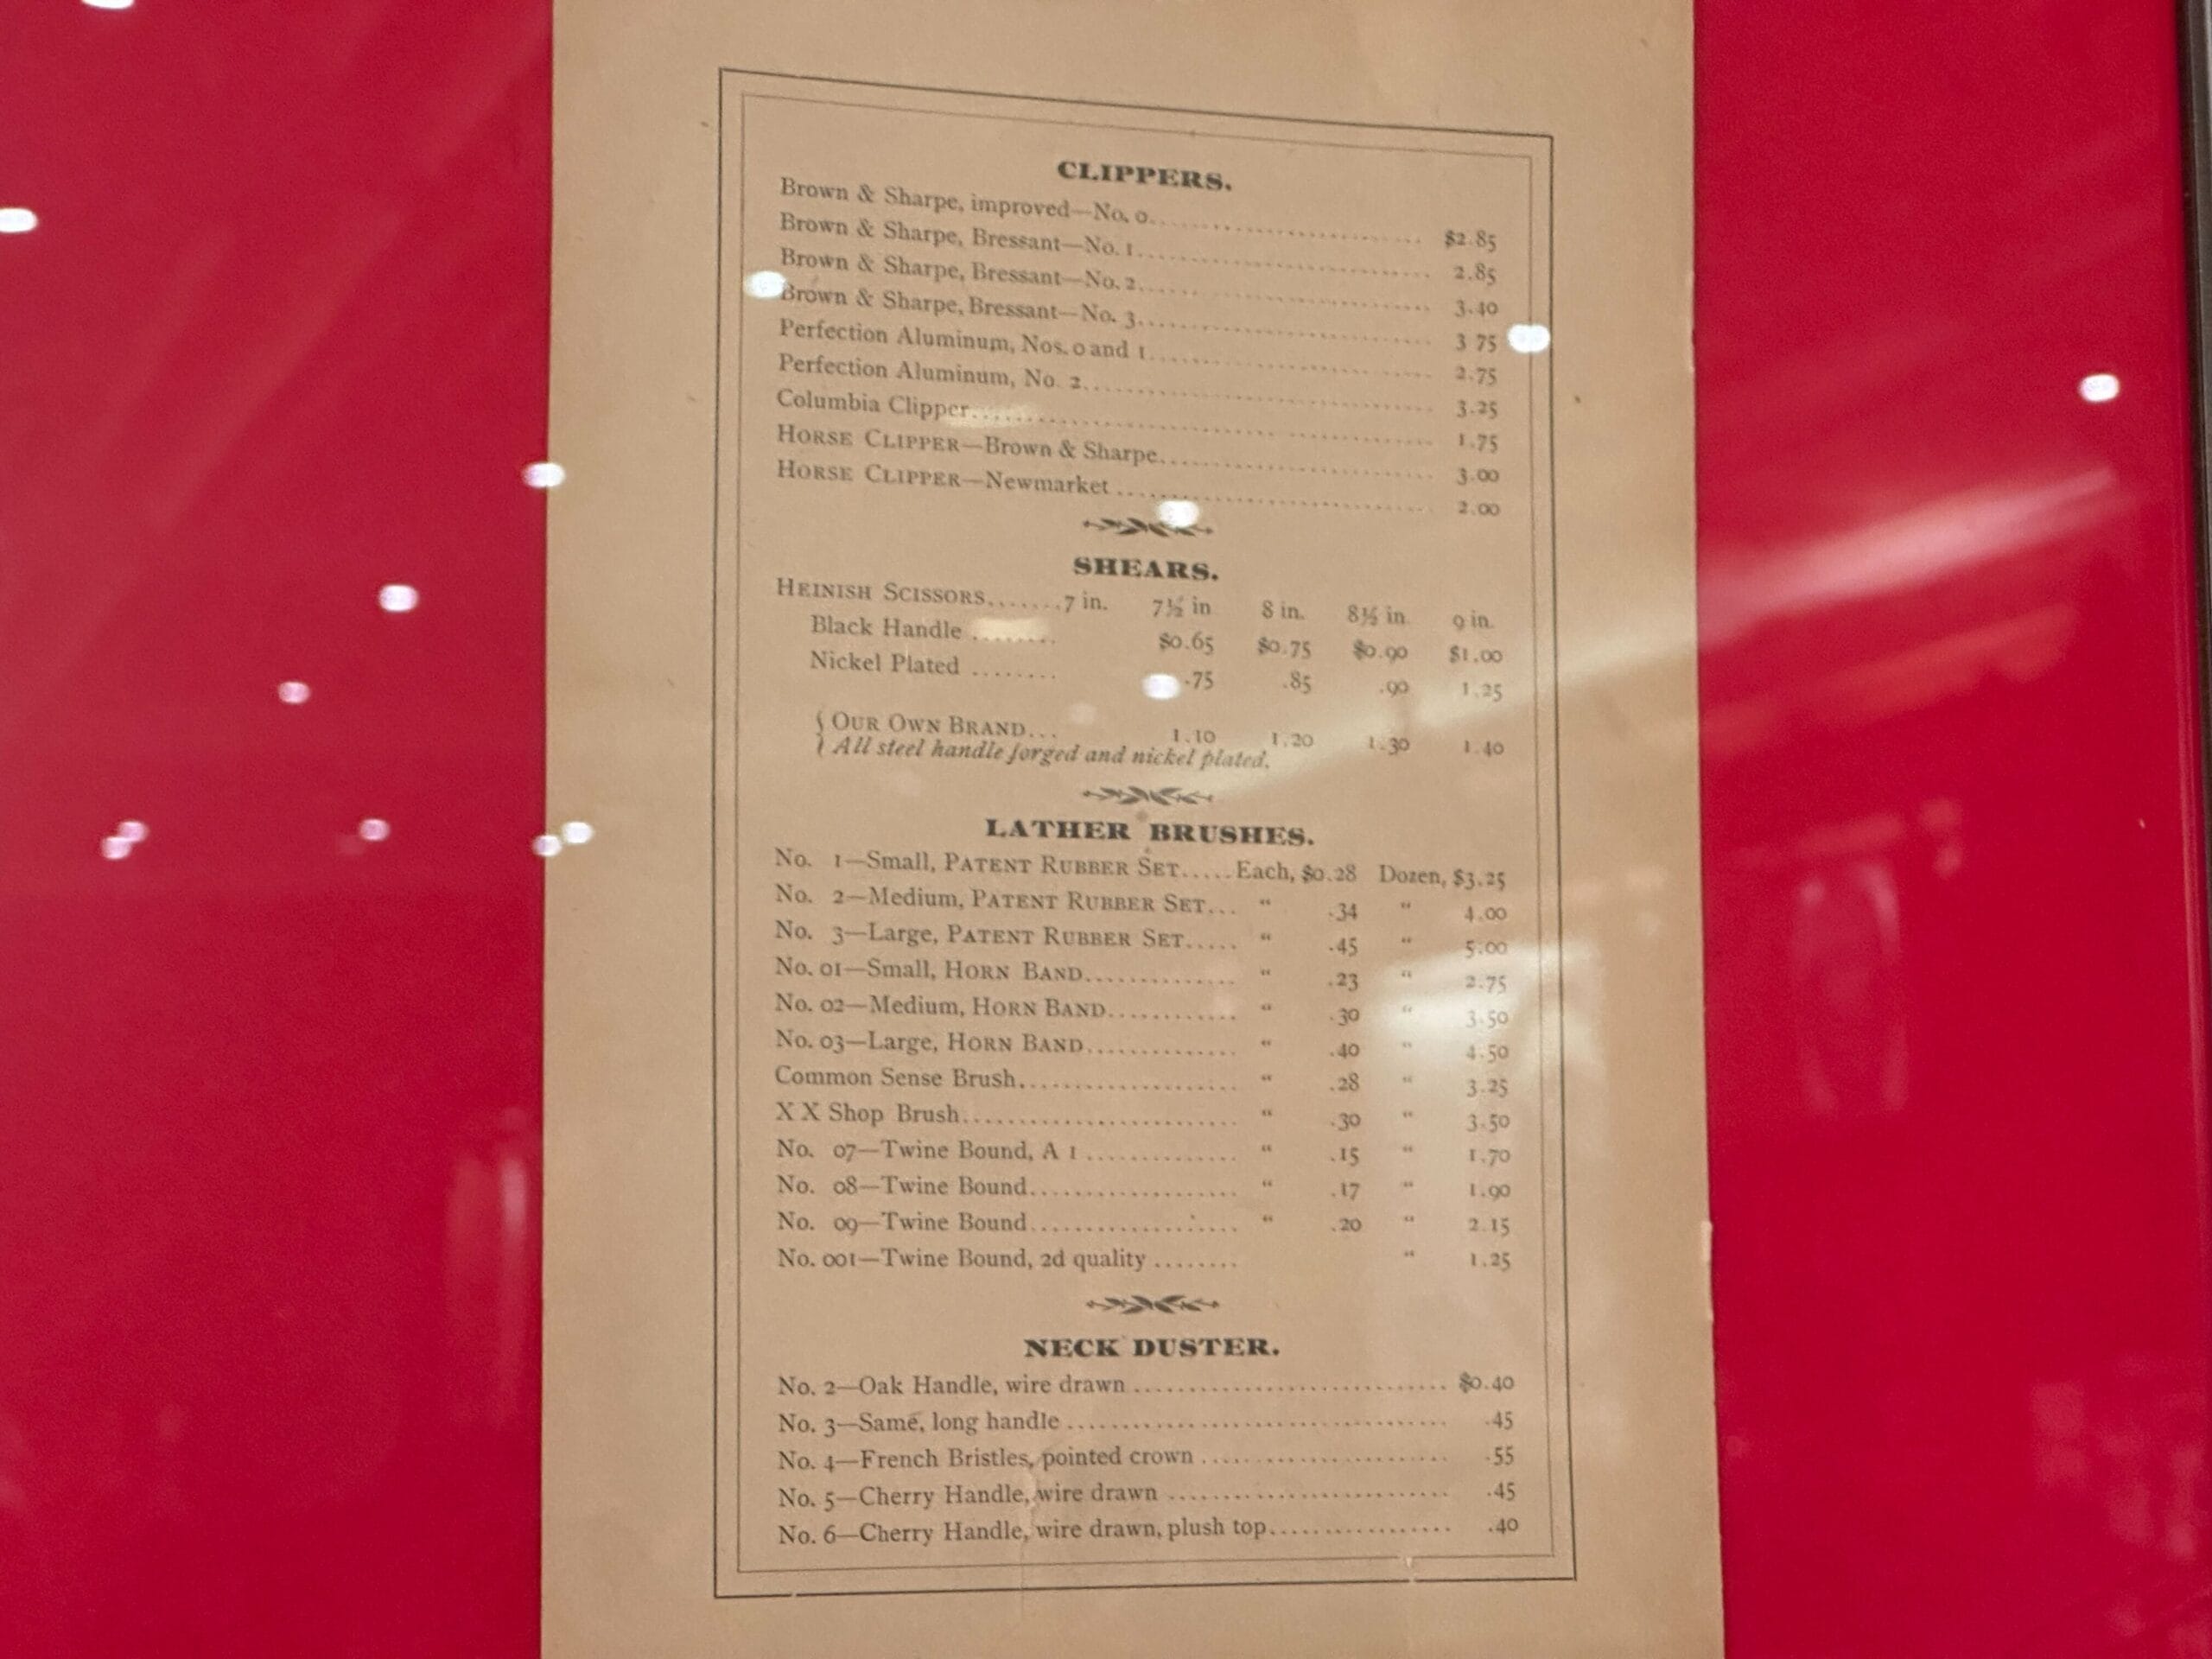 CLIPPERS.
Brown & Sharpe, improved—No. 0.................................... $2.85
Brown & Sharpe, Bressant—No. 1.................................... 2.85
Brown & Sharpe, Bressant—No. 2.................................... 3.40
Brown & Sharpe, Bressant—No. 3.................................... 3 75
Perfection Aluminum, Nos. 0 and 1.................................... 2.75
Perfection Aluminum, No. 2.................................... 3.25
Columbia Clipper.................................... 1.75
HORSE CLIPPER—Brown & Sharpe.................................... 3.00
HORSE CLIPPER—Newmarket .................................... 2.00
SHEARS.
HEINISH SCISSORS.......7 in. 7½ in 8 in. 8½ in. 9 in.
Black Handle ........ $0.65 $0.75 $0.90 $1.00
Nickel Plated ........ .75 .85 .90 1.25
{ OUR OWN BRAND... 1.10 1.20 1.30 1.40
All steel handle forged and nickel plated.
LATHER BRUSHES.
No. 1—Small, PATENT RUBBER SET.....Each, $0.28 Dozen, $3.25
No. 2—Medium, PATENT RUBBER SET... “ .34 “ 4.00
No. 3—Large, PATENT RUBBER SET..... “ .45 “ 5.00
No. 01—Small, HORN BAND.............. “ .23 “ 2.75
No. 02—Medium, HORN BAND............ “ .30 “ 3.50
No. 03—Large, HORN BAND.............. “ .40 “ 4.50
Common Sense Brush..................... “ .28 “ 3.25
X X Shop Brush.......................... “ .30 “ 3.50
No. 07—Twine Bound, A 1 .............. “ .15 “ 1.70
No. 08—Twine Bound.................... “ .17 “ 1.90
No. 09—Twine Bound.................... “ .20 “ 2.15
No. 001—Twine Bound, 2d quality ........ “ 1.25
NECK DUSTER.
No. 2—Oak Handle, wire drawn.............................. $0.40
No. 3—Same, long handle .................................... .45
No. 4—French Bristles, pointed crown ........................ .55
No. 5—Cherry Handle, wire drawn ........................... .45
No. 6—Cherry Handle, wire drawn, plush top.................. .40